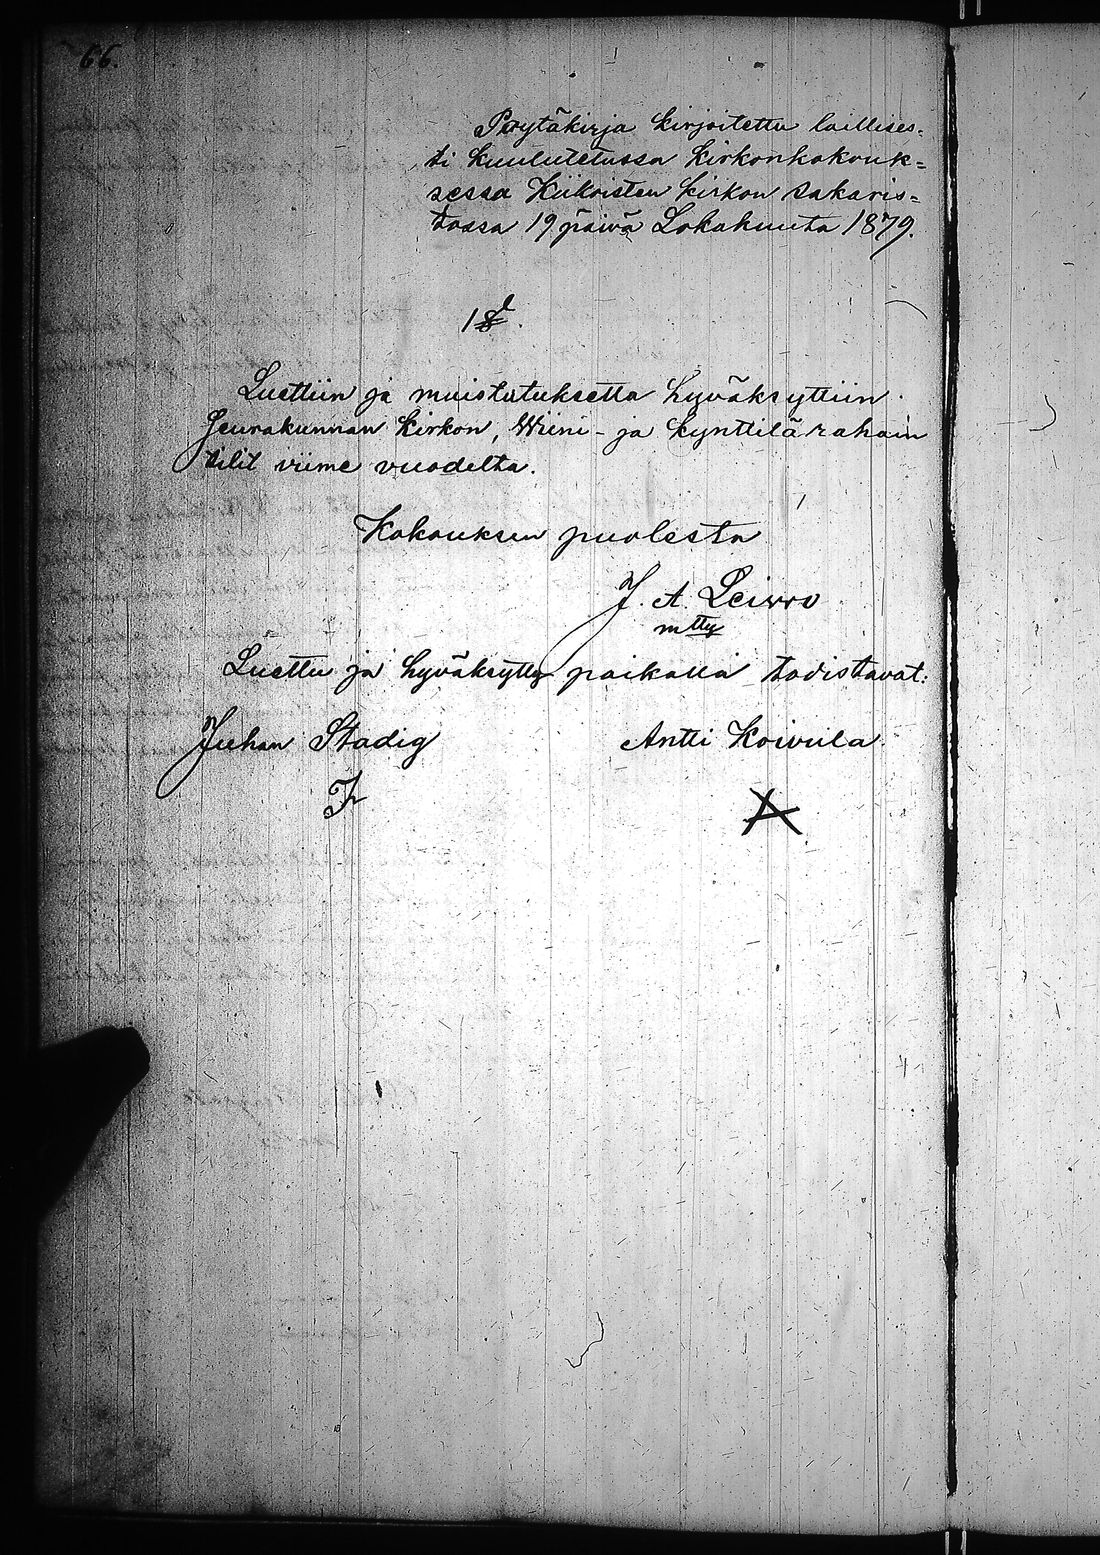 66.
Pöytäkirja kirjoitettu laillises-
ti kuulutetussa kirkonkokouk-
sessa Kiikoisten kirkon sakaris-
tossa 19 päivä Lokakuuta 1879.
1 §.
Luettiin ja muistutuksetta hyväksyttiin
Seurakunnan kirkon, Wiini- ja kynttilärahain
tilit viime vuodelta.
Kokouksen puolesta
J. A. Leivo
mtty
Luettu ja hyväksytty paikalla todistavat:
Juhan Stadig Antti Koivula